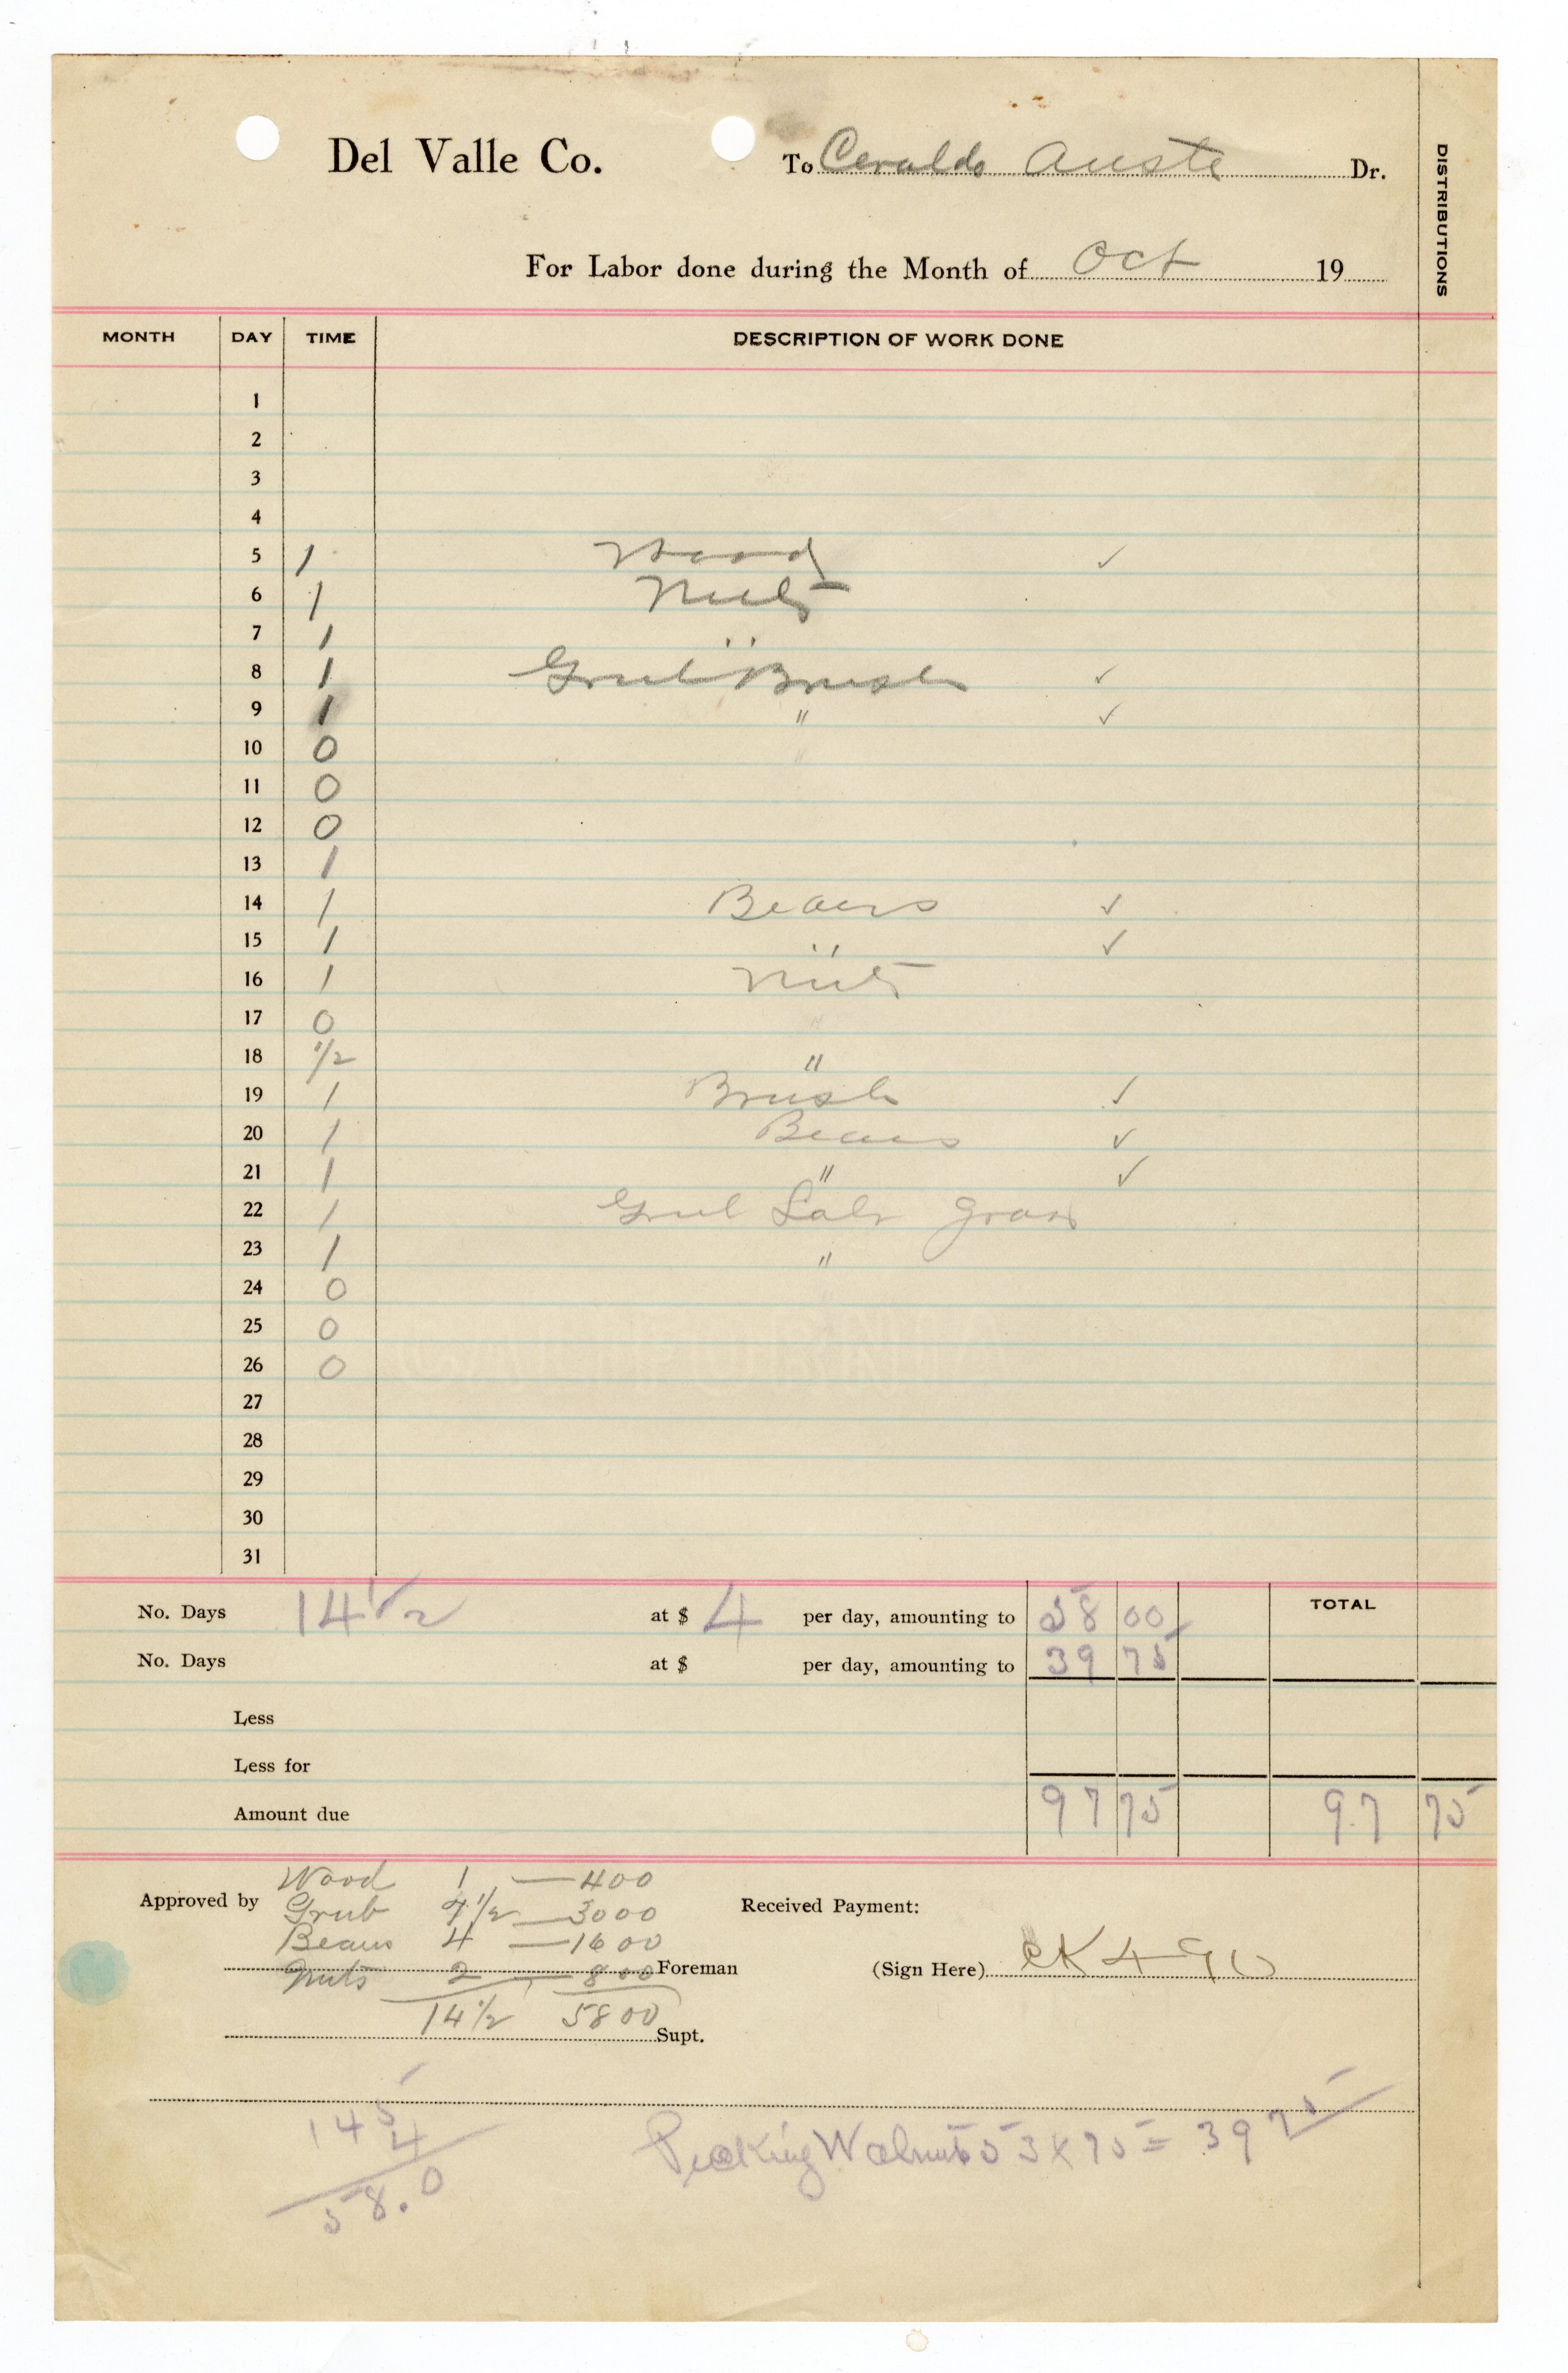 Del Valle Co. To Ceraldo Auste Dr.
DISTRIBUTIONS
For Labor done during the Month of Oct 19
MONTH DAY TIME DESCRIPTION OF WORK DONE
1
2
3
4
5 1 Wood ✓
6 1 Nuts
7 1 "
8 1 Grub Brush ✓
9 1 " ✓
10 0
11 0
12 0
13 1
14 1 Beans ✓
15 1 " ✓
16 1 Nuts
17 0
18 1/2 "
19 1 Brush ✓
20 1 Beans ✓
21 1 " ✓
22 1 Grub Salt Grass
23 1 "
24 0
25 0
26 0
27
28
29
30
31
No. Days 14 1/2 at $ 4 per day, amounting to 58 00 TOTAL
No. Days at $ per day, amounting to 39 75
Less
Less for
Amount due 97 75 97 75
Wood 1 — 400
Approved by Grub 7 1/2 — 3000 Received Payment:
Beans 4 — 1600
Nuts 2 — 800 Foreman (Sign Here) CK 490
14 1/2 5800 Supt.
14 5
4
58.0
Picking Walnuts 53 x 75 = 39 75